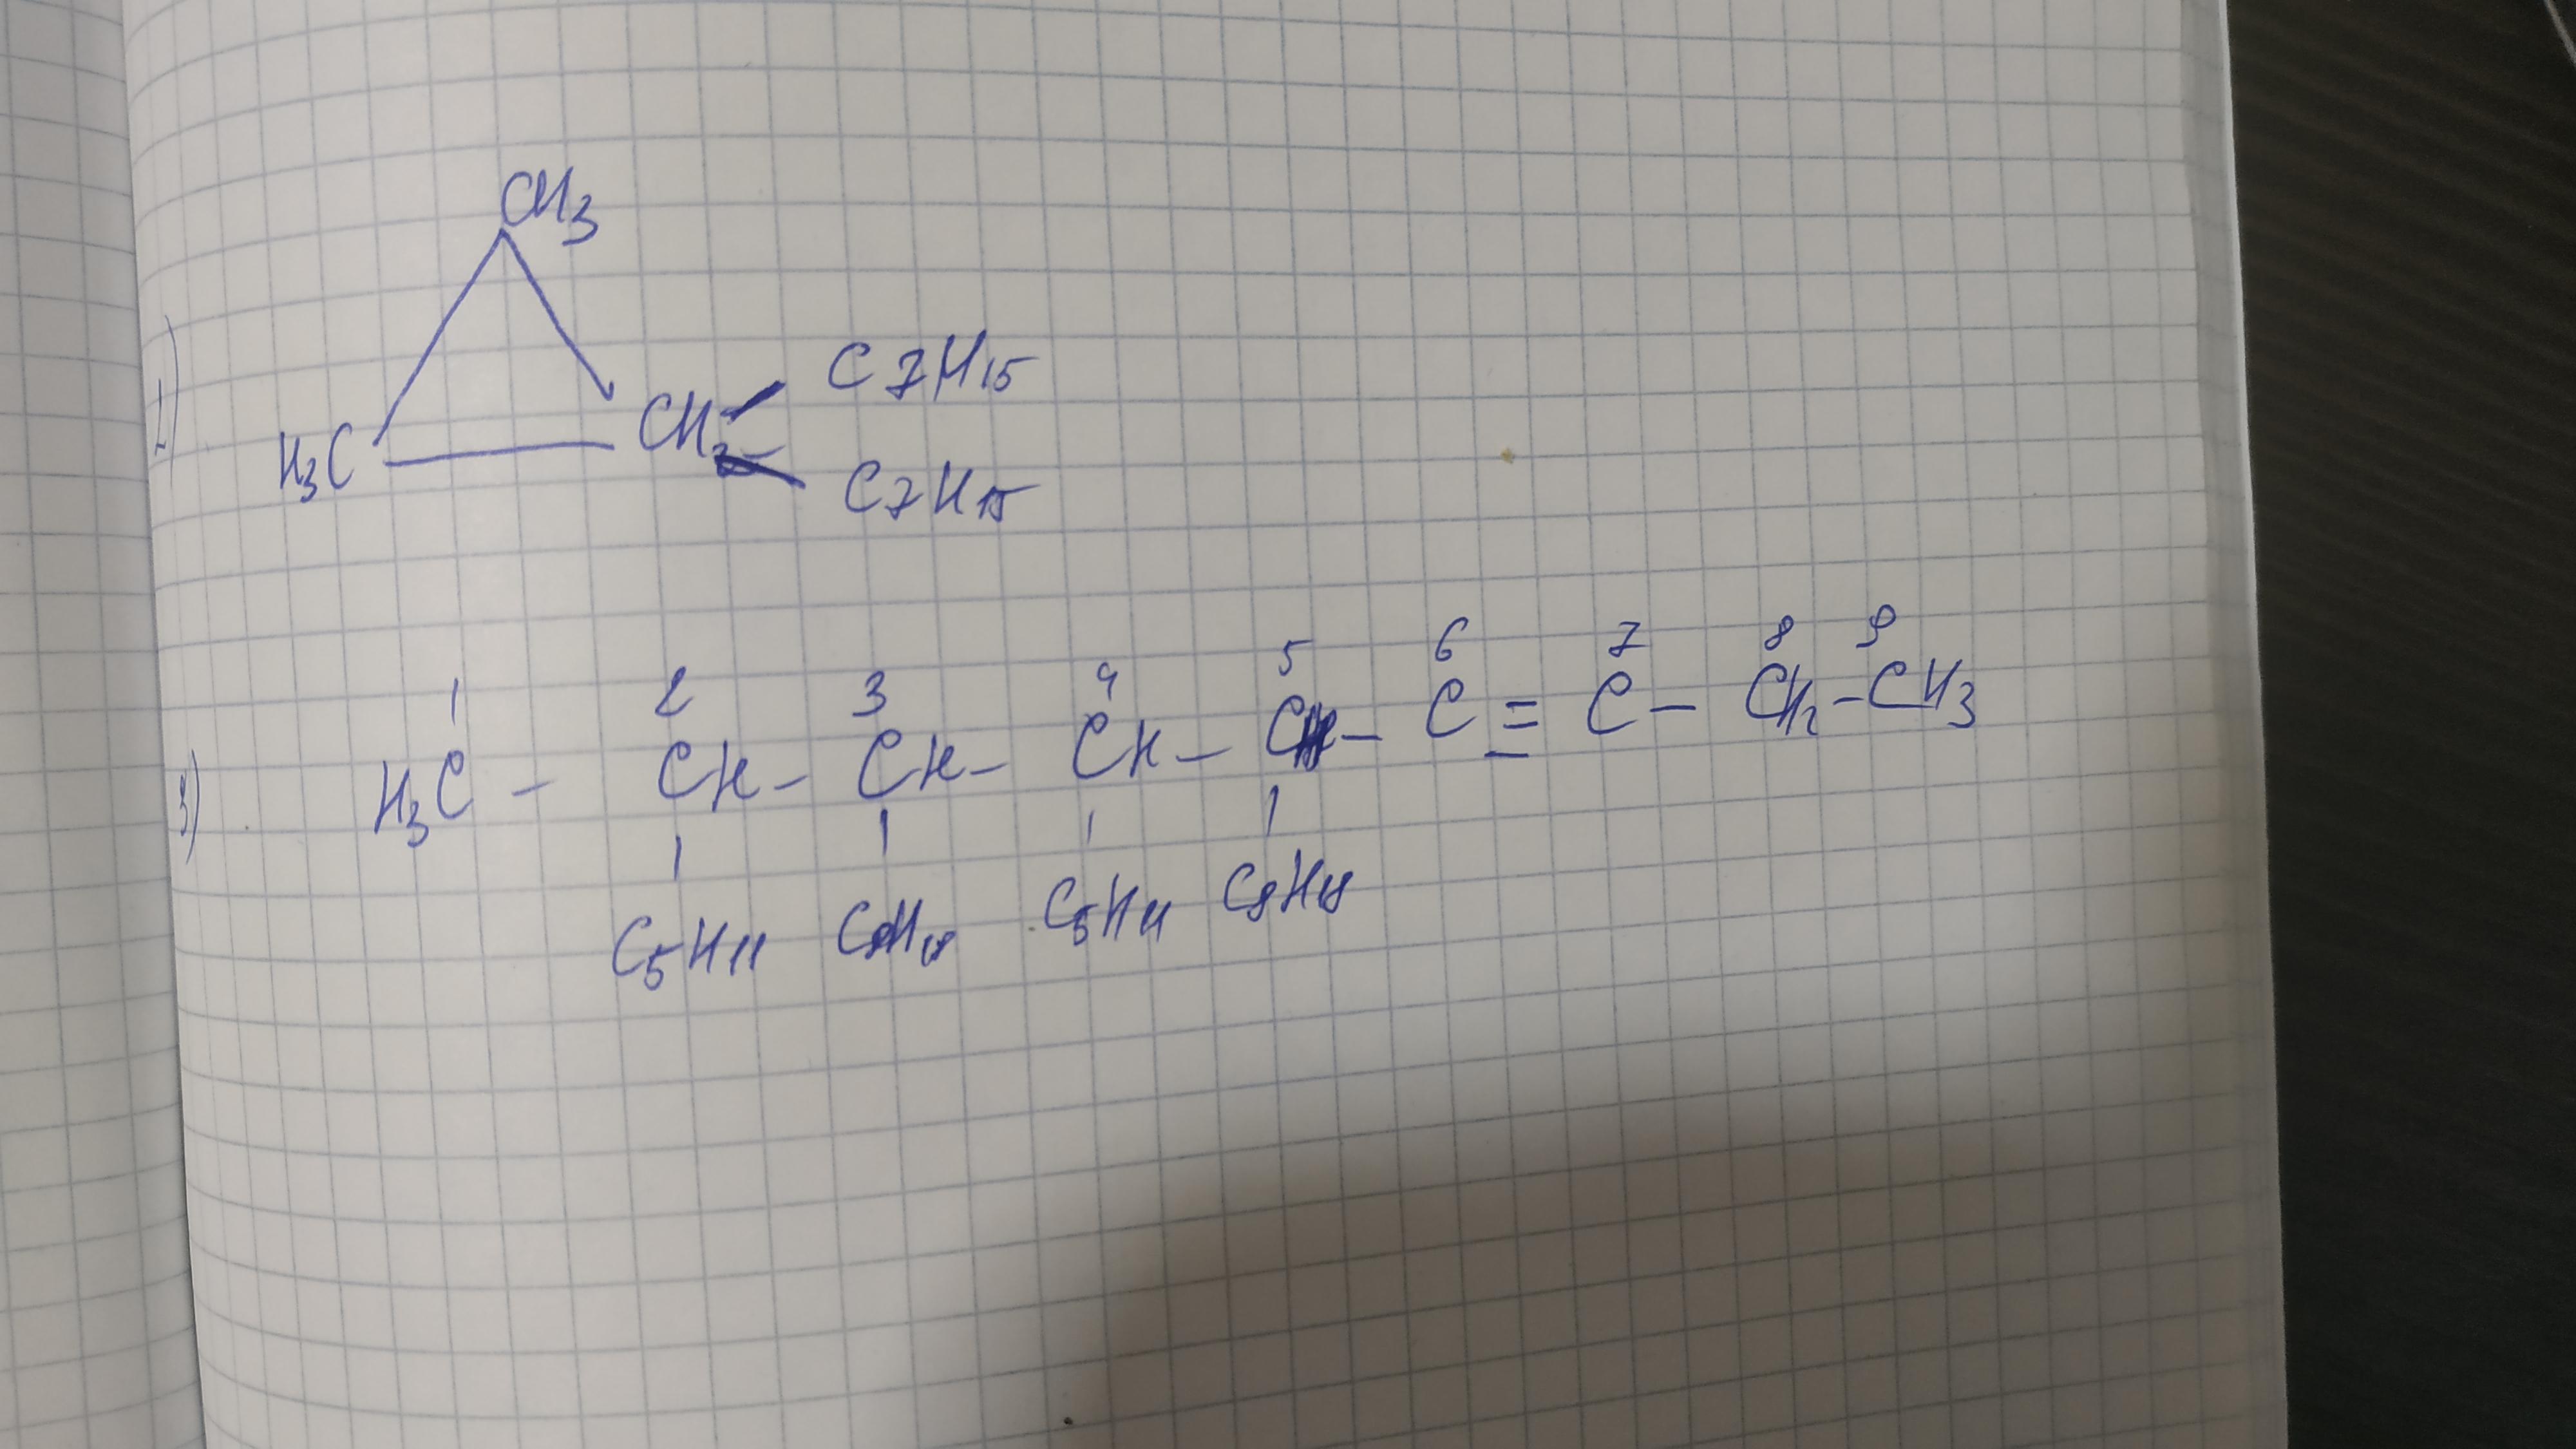 CH3
2)
C7H15
H3C CH2
C7H15
1 2 3 4 5 6 7 8 9
3) H3C - CH - CH - CH - CH - C ≡ C - CH2 - CH3
C5H11 C8H18 C5H11 C8H18